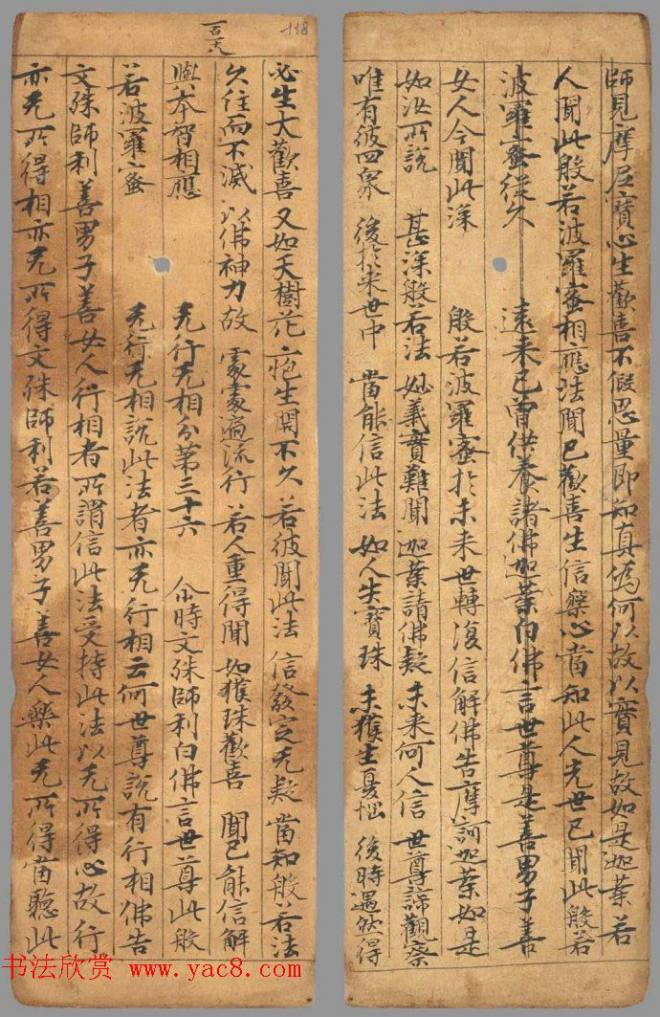 師見摩尼寶心生歡喜不假思量即知真偽何以故以寶見故如是迦葉若
人聞此般若波羅蜜相應法聞已歡喜生信樂心當知此人先世已聞此般若
波羅蜜從久 遠來已曾供養諸佛迦葉白佛言世尊是善男子善
女人今聞此深 般若波羅蜜於未來世轉復信解佛告摩訶迦葉如是
如汝所說 甚深般若法 妙義實難聞 迦葉請佛疑 未來何人信 世尊諦觀察
唯有彼四衆 後於末世中 當能信此法 如人失寶珠 未獲生憂惱 後時遇然得
118
必生大歡喜 又如天樹花 疱生開不久 若彼聞此法 信發定无疑 當知般若法
久住而不滅 以佛神力故 處處遍流行 若人重得聞 如獲珠歡喜 聞已能信解
本智相應 无行无相分第三十六 尒時文殊師利白佛言世尊此般
若波羅蜜 无行无相說此法者亦无行相云何世尊說有行相佛告
文殊師利善男子善女人行相者所謂信此法受持此法以无所得心故行
亦无所得相亦无所得文殊師利若善男子善女人樂此无所得當聽此
书法欣赏 www.yac8.com